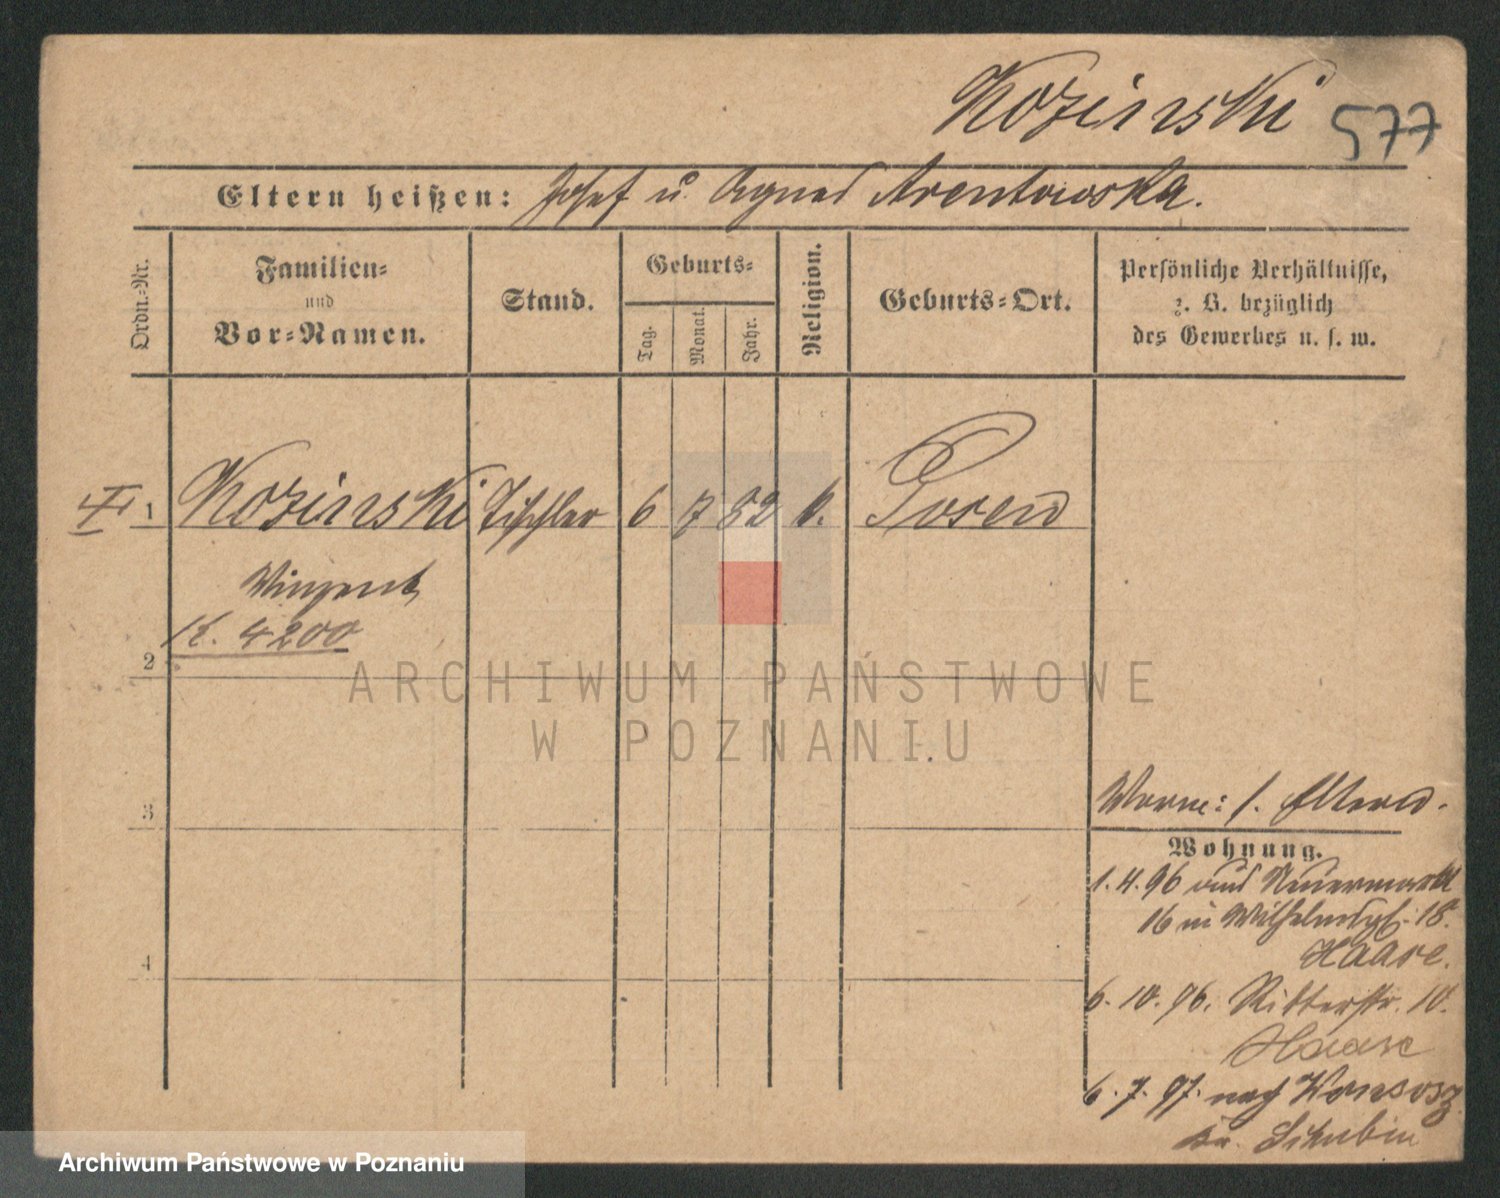 Kozinski 577
Eltern heißen: Josef u. Agnes Arentowska.
Ordn.-Nr.
Familien-
und
Vor-Namen.
Stand.
Geburts-
Tag.
Monat.
Jahr.
Religion.
Geburts-Ort.
Persönliche Verhältnisse,
z. B. bezüglich
des Gewerbes u. s. w.
1 Kozinski Tischler 6 7 82 k. Posen
Vinzent
K. 4200
2
ARCHIWUM PAŃSTWOWE
W POZNANIU
3
s. Eltern.
Wohnung.
1.4.96 aus Neuermarkt
16 in Wilhelmspl. 18.
Haase.
4
6.10.96. Ritterstr. 10.
Haase
6.7.97. nach Wonsosz
Kr. Schubin
Archiwum Państwowe w Poznaniu